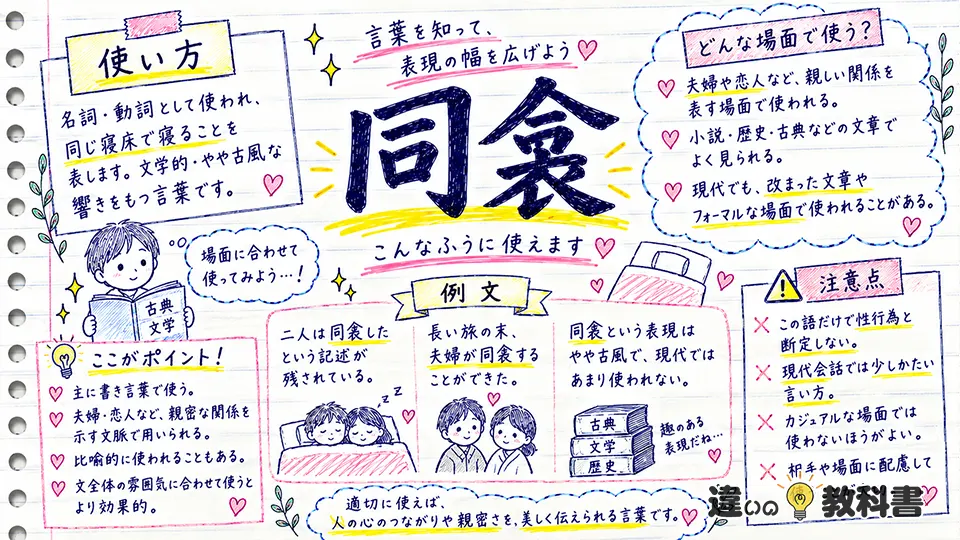 使い方
名詞・動詞として使われ、
同じ寝床で寝ることを
表します。文学的・やや古風な
響きをもつ言葉です。
言葉を知って、
表現の幅を広げよう
同衾
こんなふうに使えます
どんな場面で使う?
夫婦や恋人など、親しい関係を
表す場面で使われる。
小説・歴史・古典などの文章で
よく見られる。
現代でも、改まった文章や
フォーマルな場面で使われることがある。
場面に合わせて
使ってみよう…!
古典
文学
ここがポイント!
主に書き言葉で使う。
夫婦・恋人など、親密な関係を
示す文脈で用いられる。
比喩的に使われることもある。
文全体の雰囲気に合わせて使うと
より効果的。
例文
二人は同衾した
という記述が
残されている。
zzz
長い旅の末、
夫婦が同衾する
ことができた。
同衾という表現は
やや古風で、現代では
あまり使われない。
古典
文学
歴史
趣のある
表現だね…
注意点
この語だけで性行為と
断定しない。
現代会話では少しかたい
言い方。
カジュアルな場面では
使わないほうがよい。
相手や場面に配慮して
適切に使えば、
人の心のつながりや親密さを、美しく伝えられる言葉です。
違いの教科書